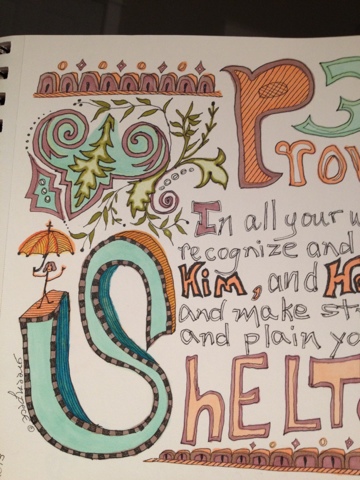 3
Prov
In all your w
recognize and
Him, and H
and make st
and plain yo
ShELT